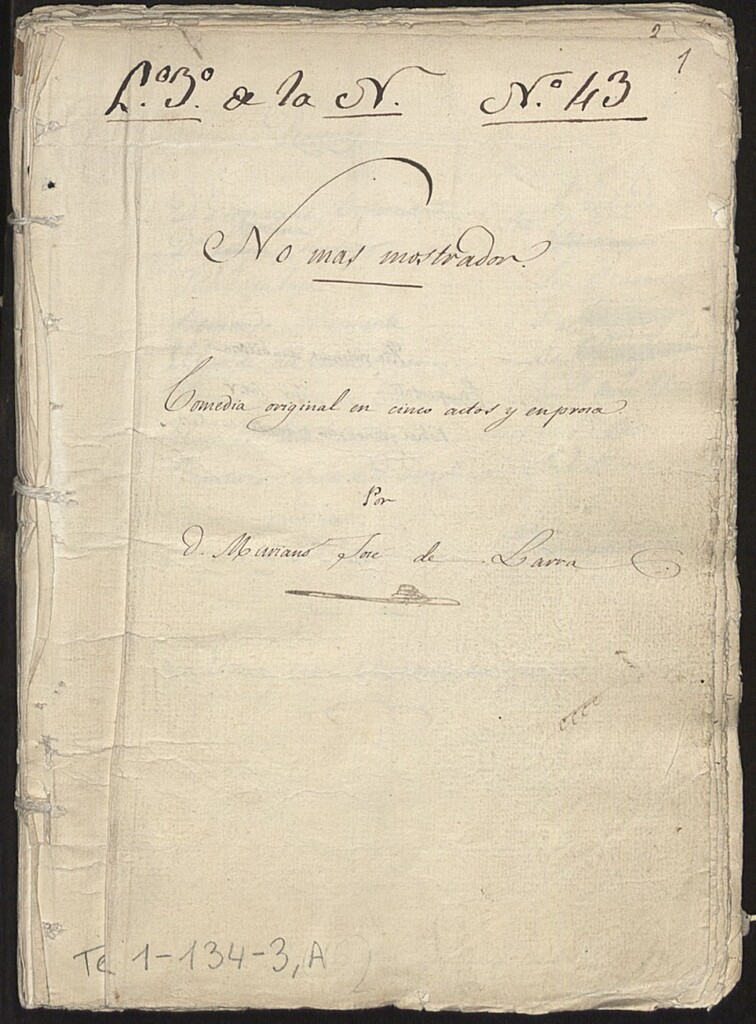 2
1
L.º 3.º de la N. N.º 43
No mas mostrador.
Comedia original en cinco actos y en prosa
Por
D. Mariano Jose de Larra
Te 1-134-3, A